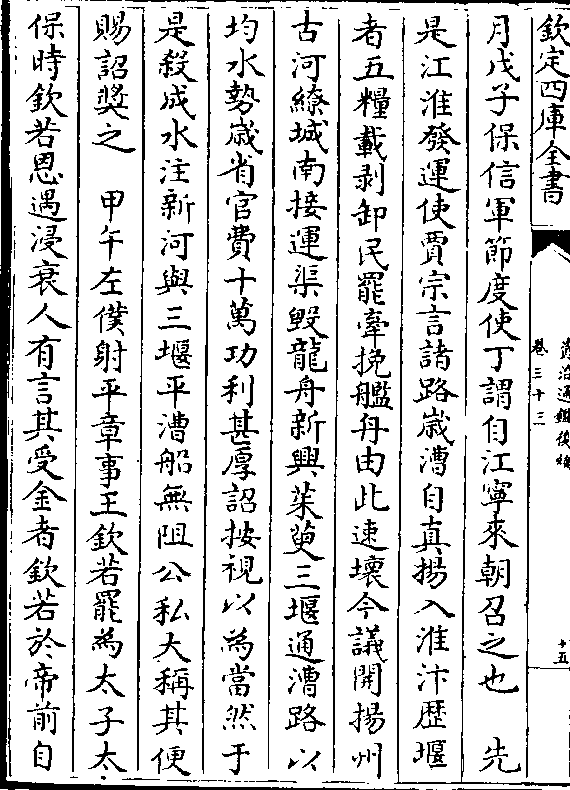 欽定四庫全書
資治通鑑後編
卷三十三
十五
月戊子保信軍節度使丁謂自江寧來朝召之也　先
是江淮發運使賈宗言諸路歳漕自真揚入淮汴歴堰
者五糧載剥卸民罷牽挽艦舟由此速壞今議開揚州
古河繚城南接運渠毁龍舟新興茱萸三堰通漕路以
均水勢歳省官費十萬功利甚厚詔按視以為當然于
是殺成水注新河與三堰平漕船無阻公私大稱其便
賜詔奬之　甲午左僕射平章事王欽若罷為太子太
保時欽若恩遇浸衰人有言其受金者欽若於帝前自